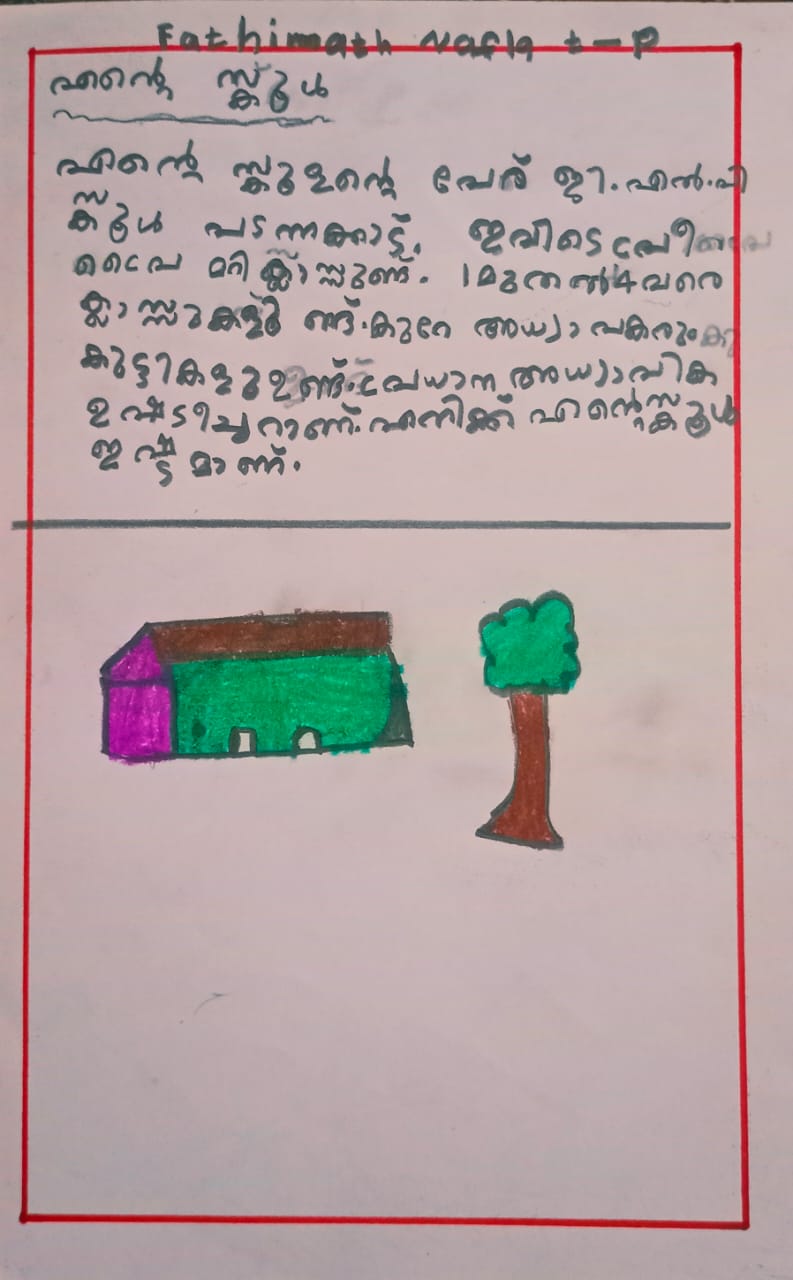 Fathimath Nafla t-p
എന്റെ സ്കൂൾ
എന്റെ സ്കൂളന്റെ പേര് ജി.എൽ.പി
സ്കൂൾ പടന്നക്കാട്ട്. ഇവിടെ പ്രീ
പ്രൈമറി ക്ലാസ്സുണ്ട്. 1മുതൽ4വരെ
ക്ലാസ്സുകളും ണ്ട്.കുറേ അധ്യാപകരും
കുട്ടികളുമുണ്ട്.പ്രധാന അധ്യാപിക
ഉഷടീച്ചറാണ്.എനിക്ക് എന്റെ സ്കൂൾ
ഇഷ്ടമാണ്.